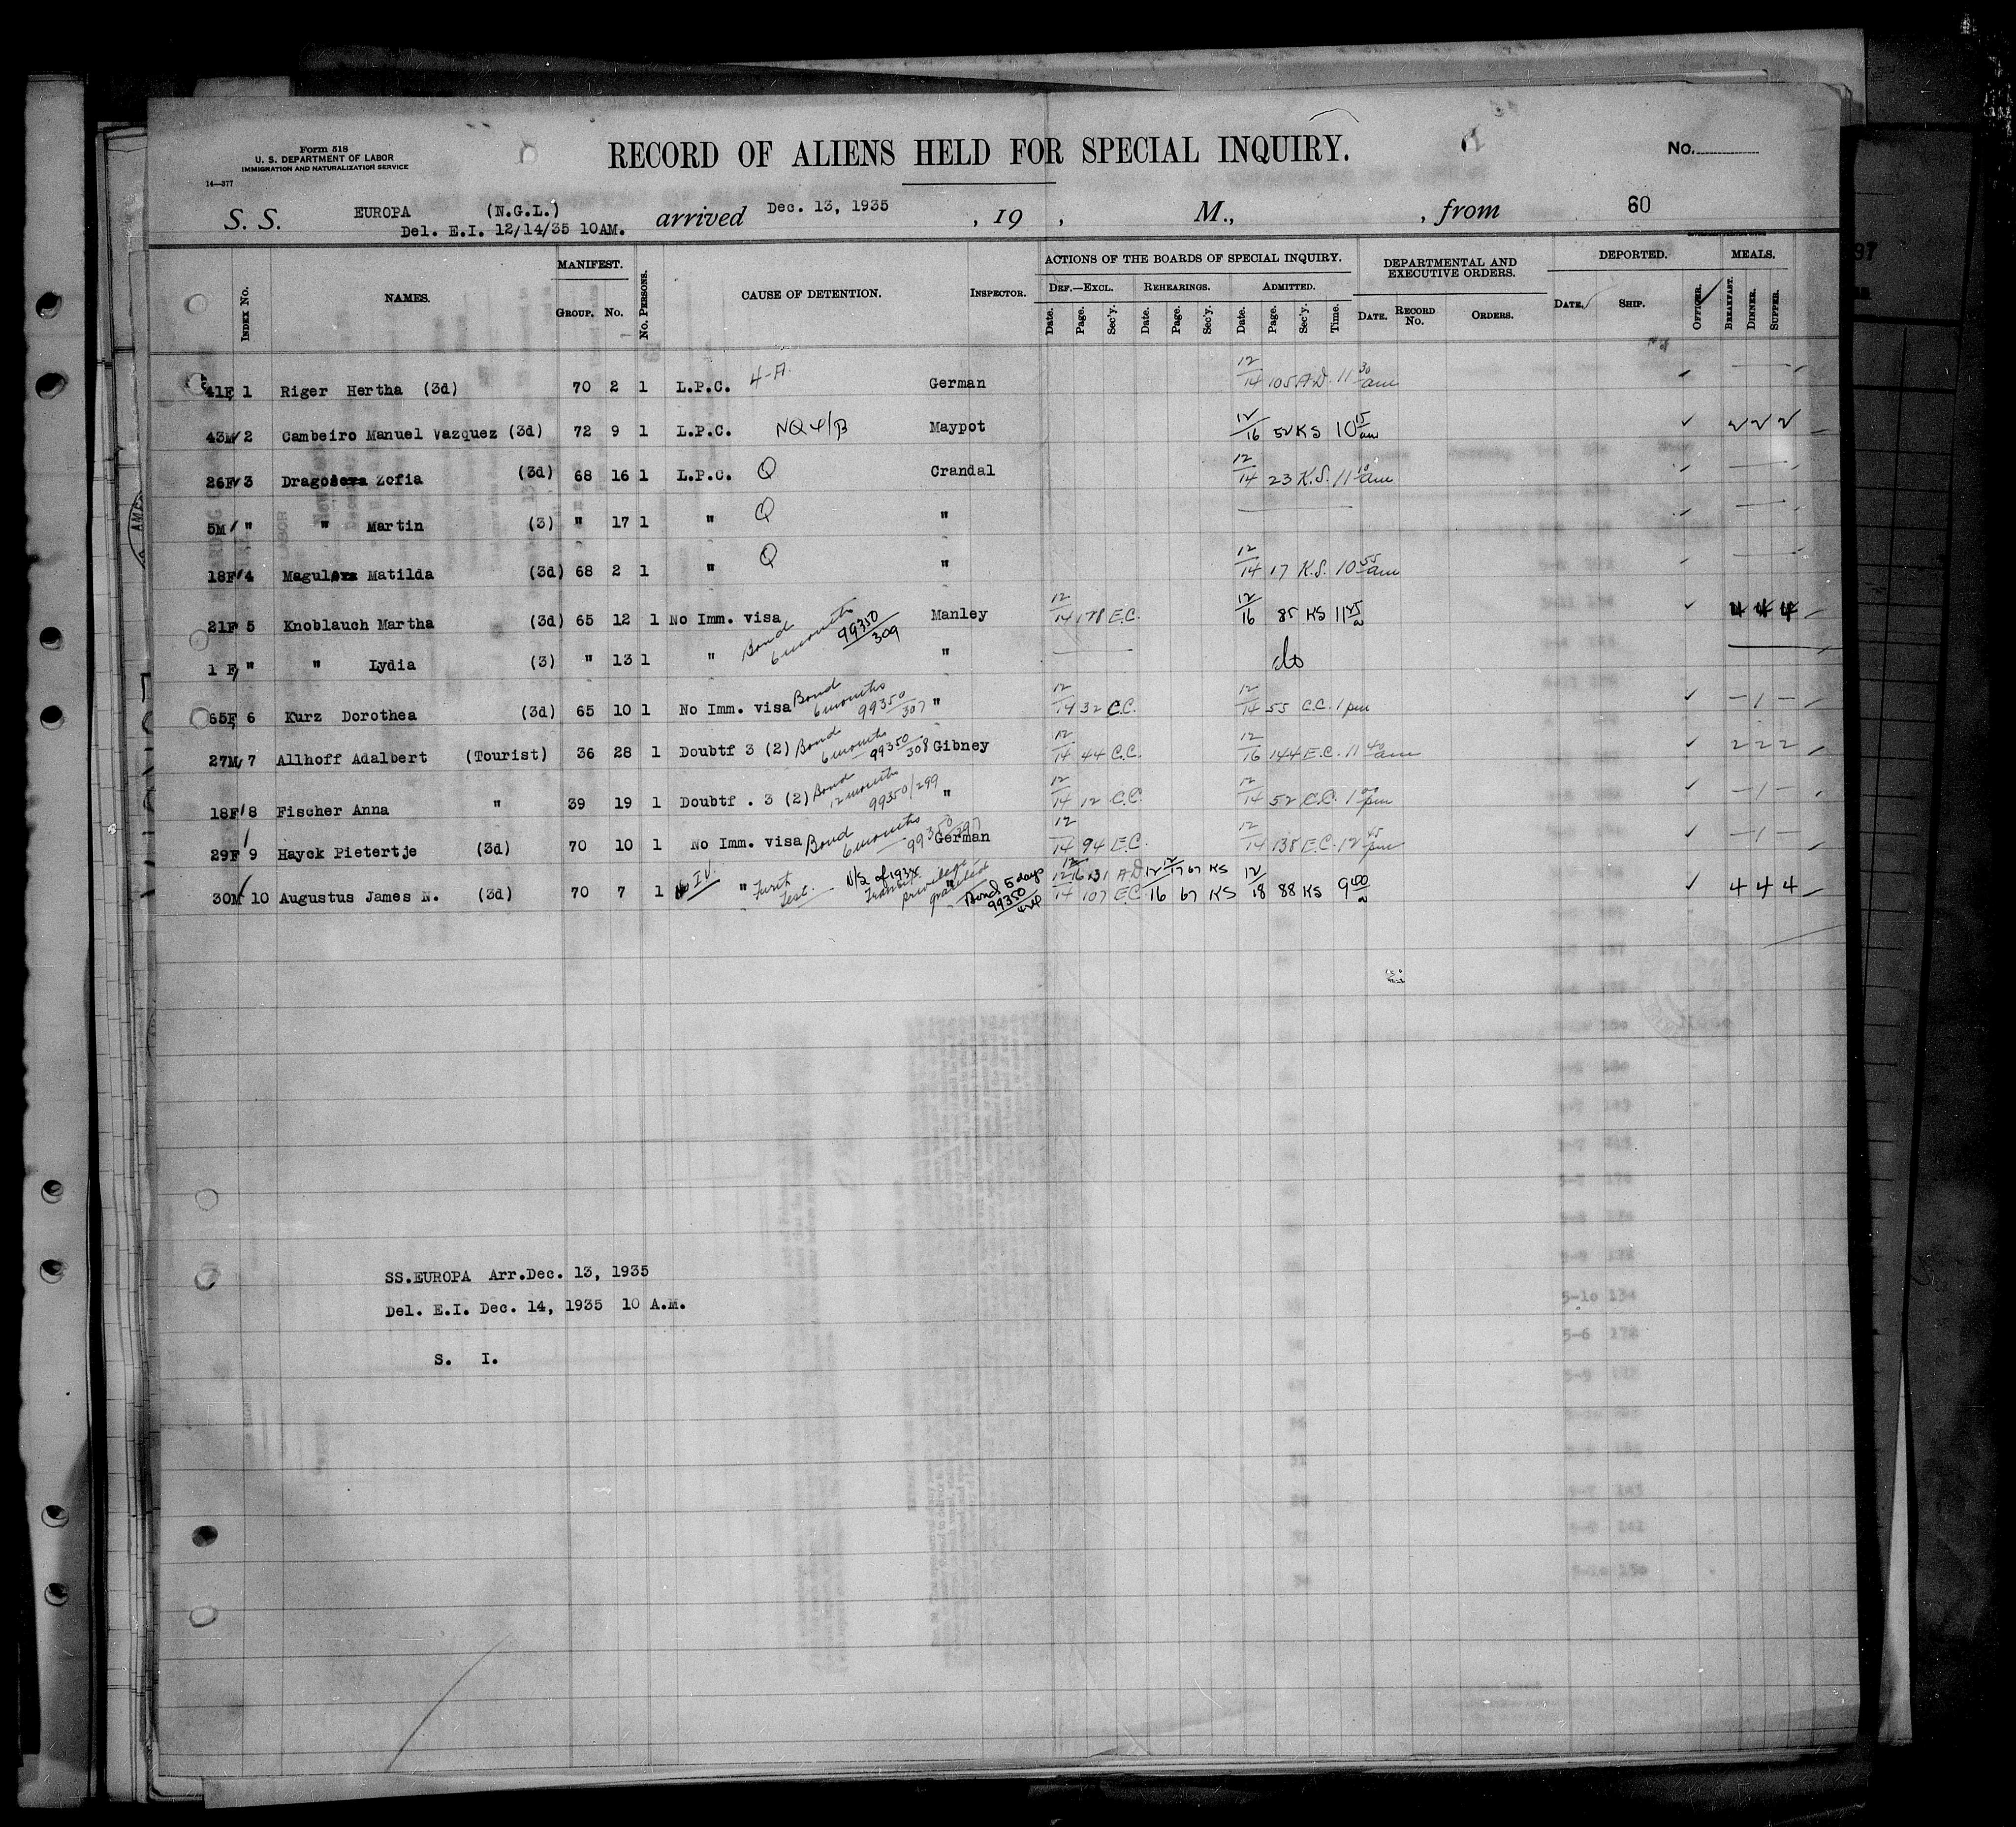 Form 518
U. S. DEPARTMENT OF LABOR
IMMIGRATION AND NATURALIZATION SERVICE
14—377
RECORD OF ALIENS HELD FOR SPECIAL INQUIRY.
No.
S. S. EUROPA (N.G.L.) arrived Dec. 13, 1935 , 19 , M., , from 60
Del. E.I. 12/14/35 10AM.
INDEX No. NAMES. MANIFEST. GROUP. No. No. PERSONS. CAUSE OF DETENTION. INSPECTOR. ACTIONS OF THE BOARDS OF SPECIAL INQUIRY. DEF.—EXCL. Date. Page. Sec'y. REHEARINGS. Date. Page. Sec'y. ADMITTED. Date. Page. Sec'y. Time. DEPARTMENTAL AND EXECUTIVE ORDERS. DATE. RECORD No. ORDERS. DEPORTED. DATE. SHIP. OFFICER. MEALS. BREAKFAST. DINNER. SUPPER.
41F 1 Riger Hertha (3d) 70 2 1 L.P.C. 4-A. German 12/14 105 A.D. 11 30 am
43M 2 Cambeiro Manuel Vazquez (3d) 72 9 1 L.P.C. Maypot 12/16 52 KS 10 15 am 2 2 2
26F 3 Zofia (3d) 68 16 1 L.P.C. Q Crandal 12/14 23 K.S. 11 10 am
5M " " Martin (3) " 17 1 " Q "
18F 4 Matilda (3d) 68 2 1 " Q " 12/14 17 K.S. 10 55 am
21F 5 Knoblauch Martha (3d) 65 12 1 No Imm. visa Bond 6 months 99350/309 Manley 12/14 178 E.C. 12/16 85 KS 11 25 a 4 4 4
1 F " " Lydia (3) " 13 1 " " do
65F 6 Kurz Dorothea (3d) 65 10 1 No Imm. visa Bond 6 months 99350/307 " 12/14 32 C.C. 12/14 55 C.C. 1 pm — 1 —
27M 7 Allhoff Adalbert (Tourist) 36 28 1 Doubtf 3 (2) Bond 6 months 99350/308 Gibney 12/14 44 C.C. 12/16 144 E.C. 11 40 am 2 2 2
18F 8 Fischer Anna " 39 19 1 Doubtf . 3 (2) Bond 12 months 99350/299 " 12/14 12 C.C. 12/14 52 C.C. 1 00 pm — 1 —
29F 9 Hayck Pietertje (3d) 70 10 1 No Imm. visa Bond 6 months 99350/297 German 12/14 94 E.C. 12/14 138 E.C. 12 45 pm — 1 —
30M 10 Augustus James N. (3d) 70 7 1 No I.V. " Transit privilege granted " Bond 5 days 99350 12/16 131 A.D. 12/17 67 KS
12/14 107 E.C. 16 67 KS 12/18 88 KS 9 00 a 4 4 4
SS.EUROPA Arr.Dec. 13, 1935
Del. E.I. Dec. 14, 1935 10 A.M.
S. I.
5-10 134
5-6 172